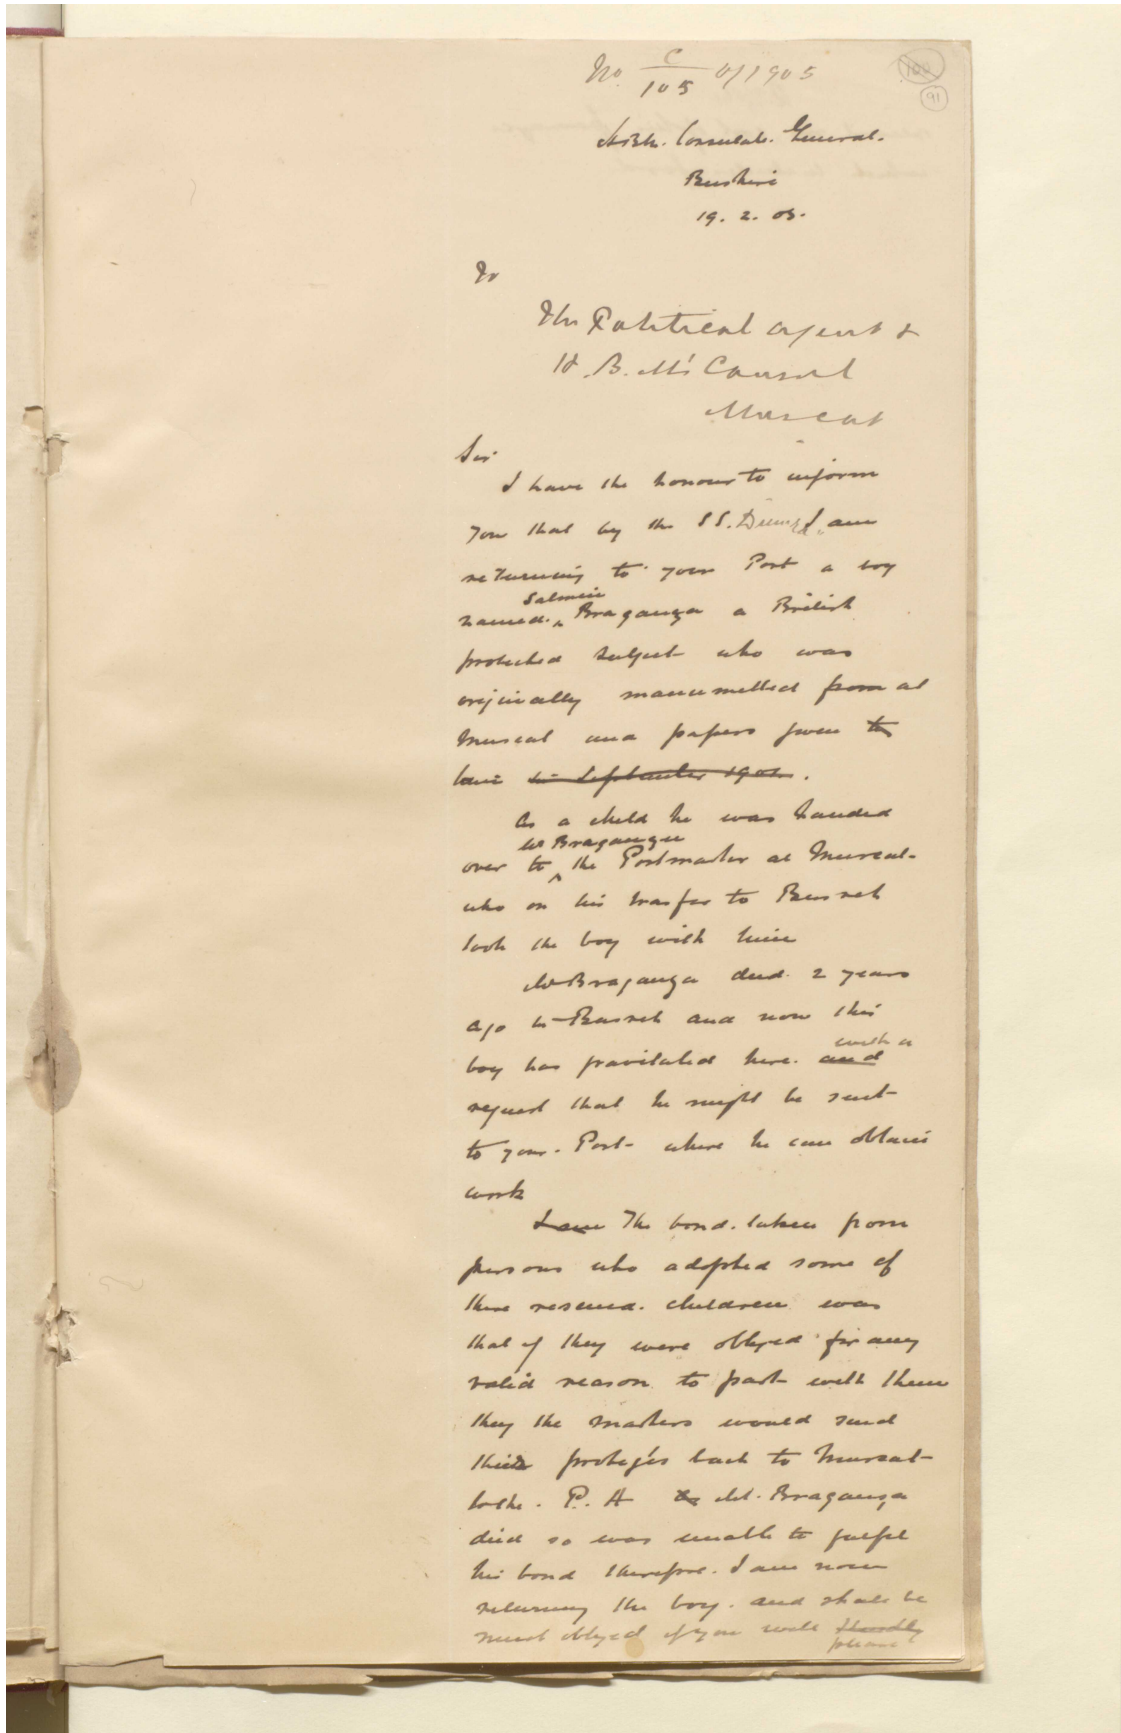 No. C/105 of 1905
100
91
H.B.M. Consulate General.
Bushire
19. 2. 05.
To
The Political Agent &
H.B.M's Consul
Muscat
Sir
I have the honour to inform
you that by the S.S. I am
returning to your Port a boy
Salmin
named Braganza a British
protected subject who was
originally manumitted from at
Muscat and papers given to
him in September 1902.
As a child he was handed
Mr Braganza
over to the Postmaster at Muscat
who on his trasfer to Busreh
took the boy with him
Mr Braganza died 2 years
ago in Busreh and now this
with a
boy has gravitated here. and
request that he might be sent
to your Port where he can obtain
work
I am The bond taken from
persons who adopted some of
these rescued children was
that if they were obliged for any
valid reason to part with them
they the masters would send
their protegés back to Muscat
to the P. A Mr. Braganza
died so was unable to fulfil
his bond therefore I am now
returning the boy and shall be
must obliged if you will kindly
please